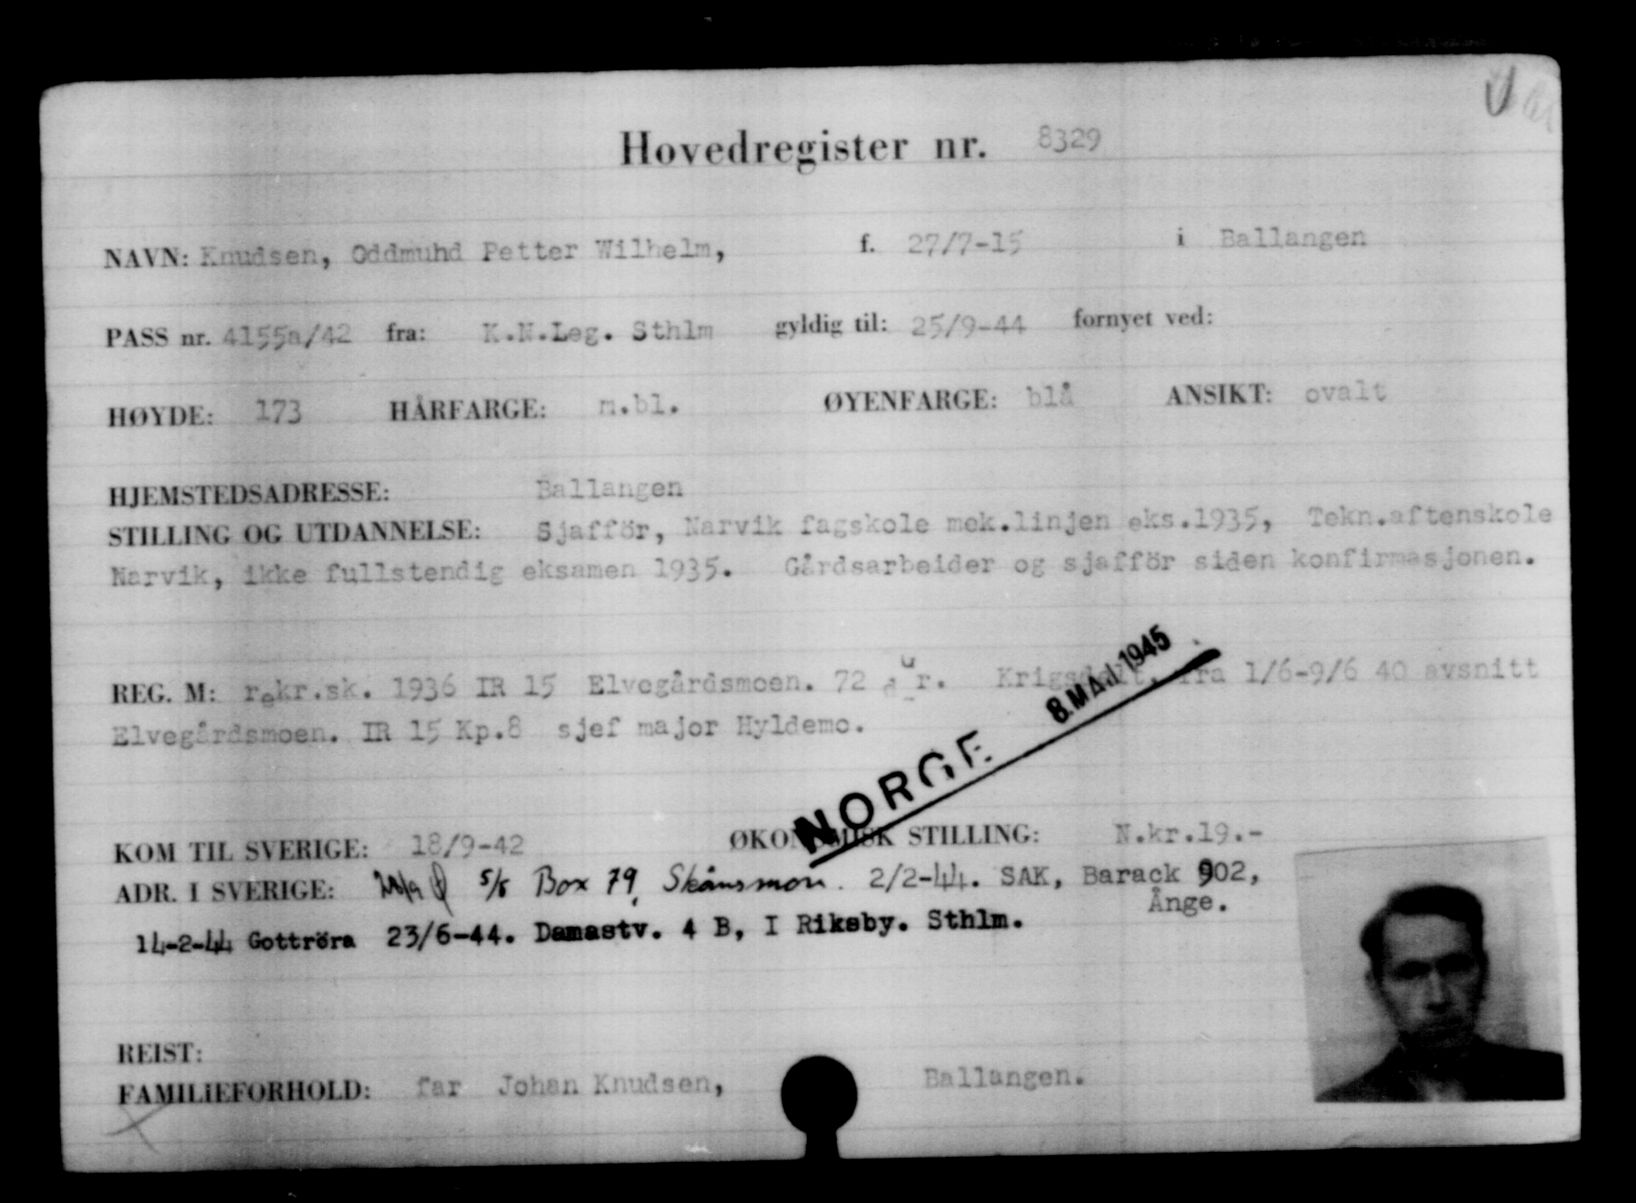 Hovedregister nr. 8329
NAVN: Knudsen, Oddmuhd Petter Wilhelm, f. 27/7-15 i Ballangen
PASS nr. 4155a/42 fra: K.N.Leg. Sthlm gyldig til: 25/9-44 fornyet ved:
HØYDE: 173 HÅRFARGE: m.bl. ØYENFARGE: blå ANSIKT: ovalt
HJEMSTEDSADRESSE: Ballangen
STILLING OG UTDANNELSE: Sjafför, Narvik fagskole mek.linjen eks.1935, Tekn.aftenskole
Narvik, ikke fullstendig eksamen 1935. Gårdsarbeider og sjafför siden konfirmasjonen.
8.MAI 1945
REG. M: rekr.sk. 1936 IR 15 Elvegårdsmoen. 72 Krigsdelt. fra 1/6-9/6 40 avsnitt
Elvegårdsmoen. IR 15 Kp.8 sjef major Hyldemo.
NORGE
KOM TIL SVERIGE: 18/9-42 ØKONOMISK STILLING: N.kr.19.-
ADR. I SVERIGE: 5/5 Box 79, Skånsmon. 2/2-44. SAK, Barack 902,
Ånge.
14-2-44 Gottröra 23/6-44. Damastv. 4 B, I Riksby. Sthlm.
REIST:
FAMILIEFORHOLD: far Johan Knudsen, Ballangen.